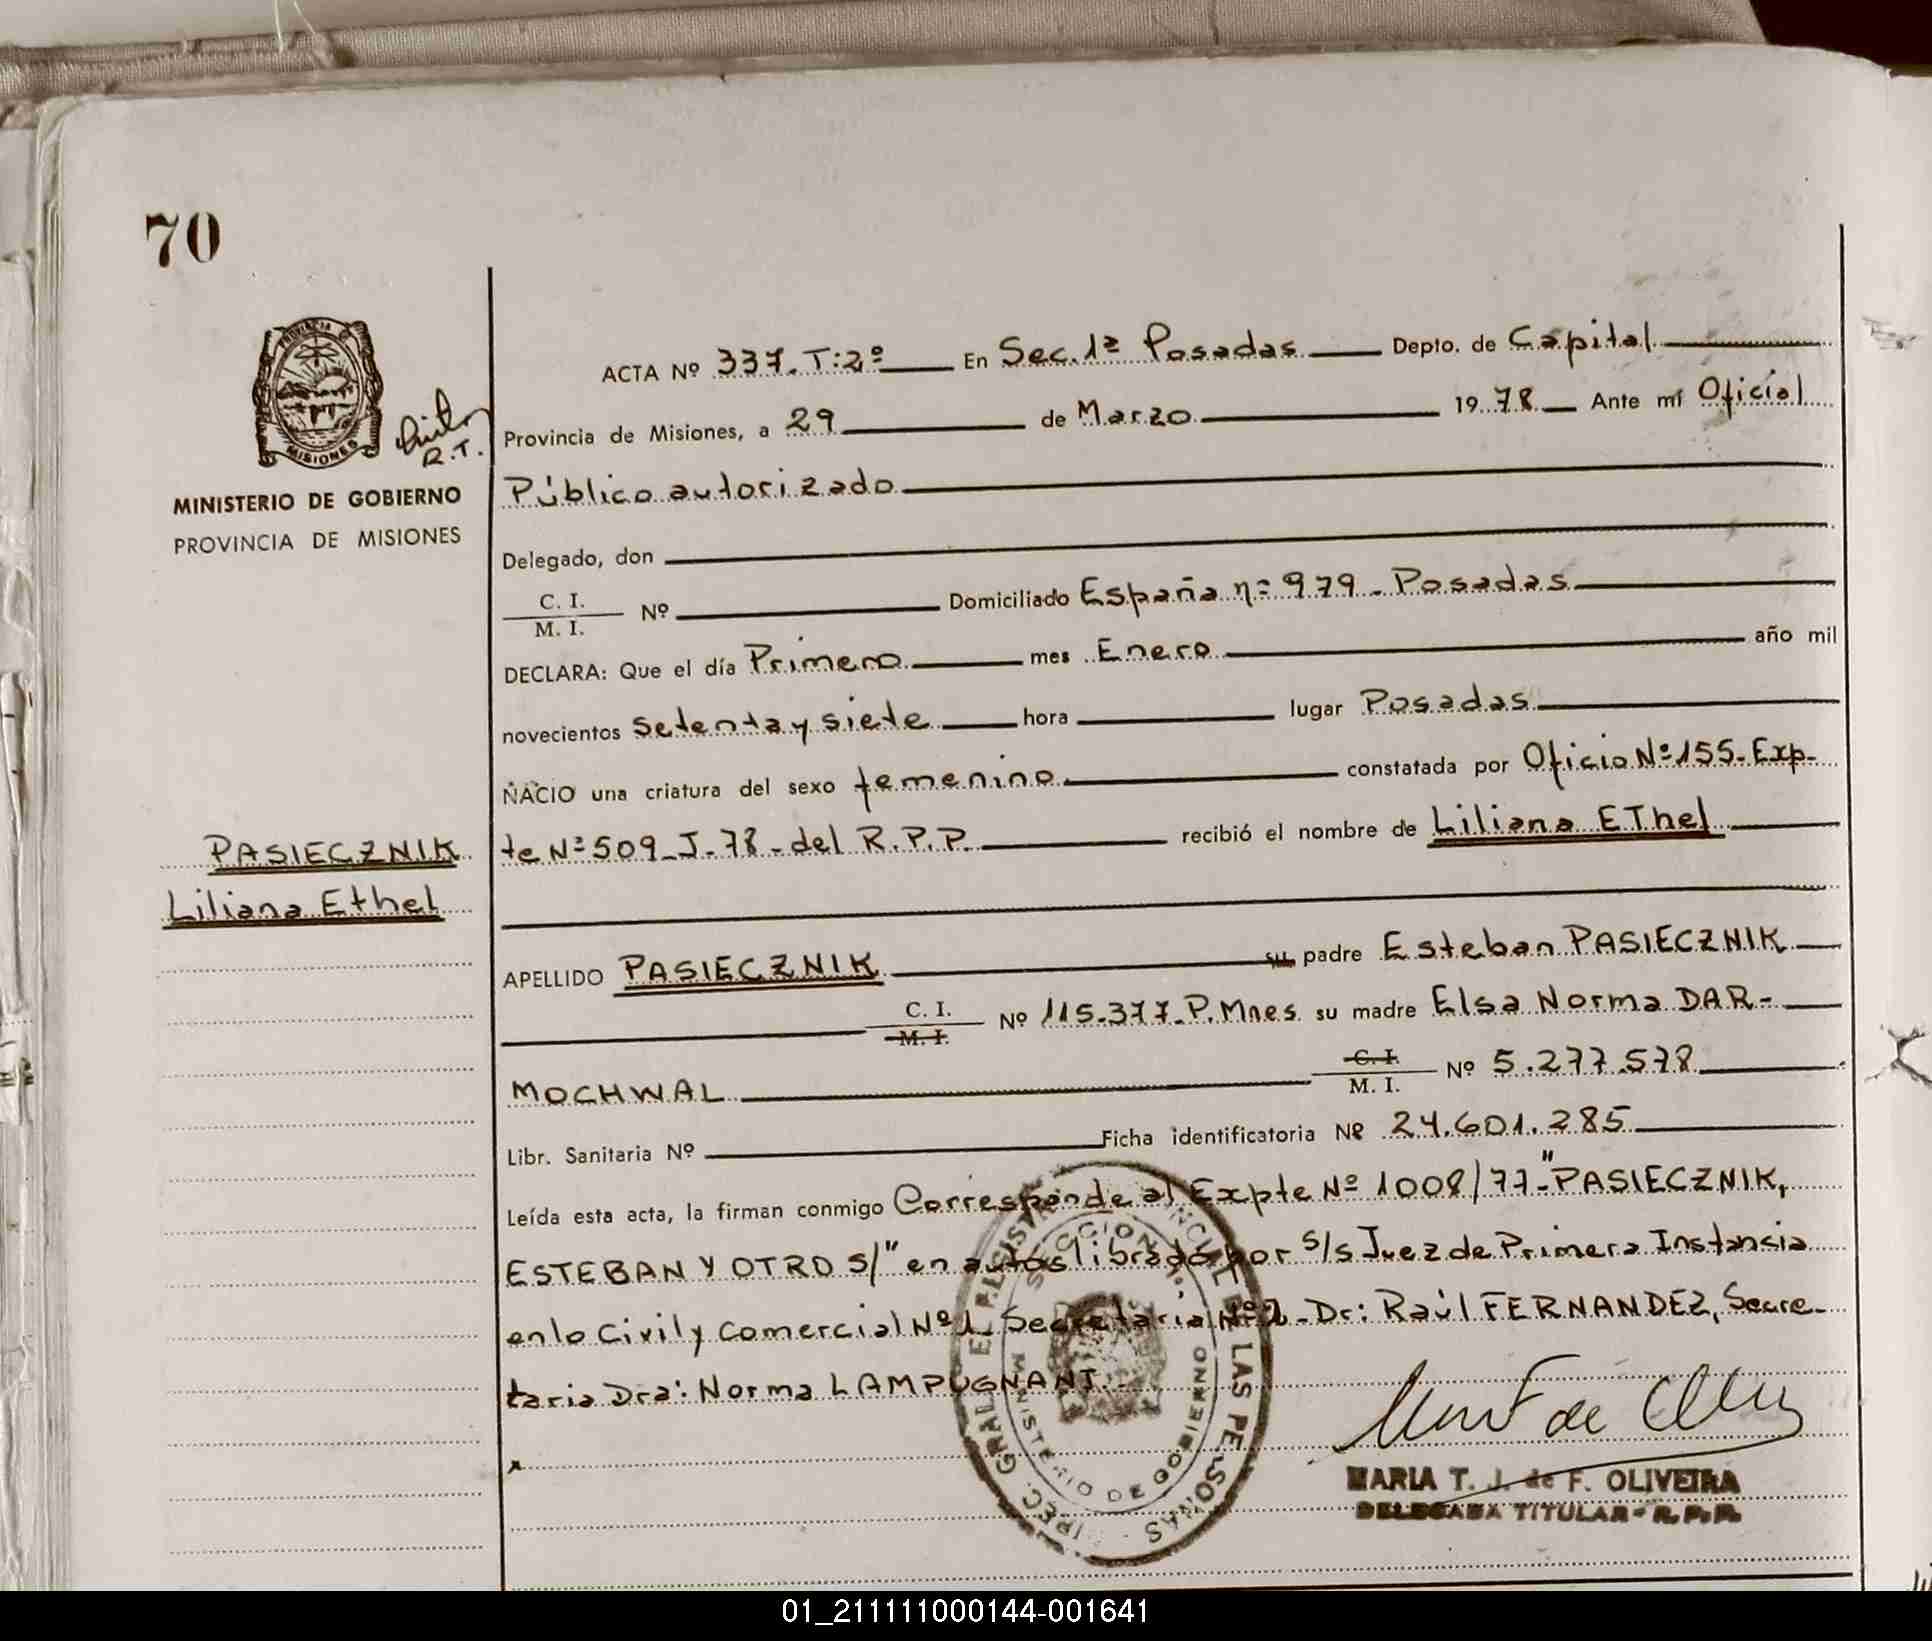 70
ACTA Nº 337. T:2º En Sec. 1ª Posadas Depto. de Capital
Provincia de Misiones, a 29 de Marzo 1978 Ante mí Oficial
R.T.
Público autorizado
MINISTERIO DE GOBIERNO
PROVINCIA DE MISIONES
Delegado, don
C. I. / M. I. Nº Domiciliado España nº 979 - Posadas
DECLARA: Que el día Primero mes Enero año mil
novecientos setenta y siete hora lugar Posadas
NACIO una criatura del sexo femenino constatada por Oficio Nº 155- Exp-
PASIECZNIK
te Nº 509-J-78-del R.P.P. recibió el nombre de Liliana EThel
Liliana Ethel
APELLIDO PASIECZNIK su padre Esteban PASIECZNIK
C. I. / M. I. Nº 115.377-P.Mnes su madre Elsa Norma DAR-
MOCHWAL C. I. / M. I. Nº 5.277.578
Libr. Sanitaria Nº Ficha identificatoria Nº 24.601.285
Leída esta acta, la firman conmigo Corresponde al Expte Nº 1008/77-"PASIECZNIK,
ESTEBAN Y OTRO S/" en autos librado por S/S Juez de Primera Instansia
en lo Civil y Comercial Nº 1 Secretaria Nº 2 - Dr: Raúl FERNANDEZ, Secre-
taria Dra: Norma LAMPUGNANI.
MINISTERIO DE GOBIERNO
MARIA T. J. de F. OLIVEIRA
DELEGADA TITULAR - R.P.P.
01_211111000144-001641